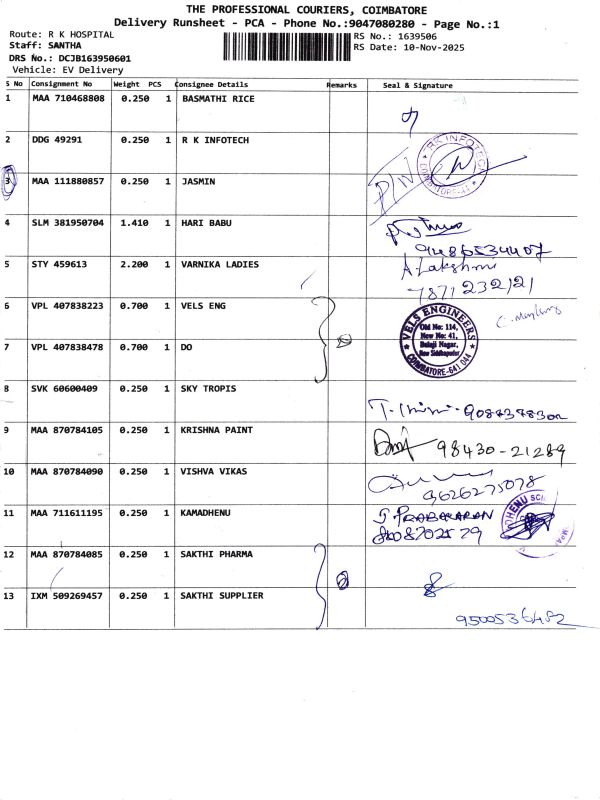 THE PROFESSIONAL COURIERS, COIMBATORE
Delivery Runsheet - PCA - Phone No.:9047080280 - Page No.:1
Route: R K HOSPITAL
RS No.: 1639506
Staff: SANTHA
RS Date: 10-Nov-2025
DRS No.: DCJB163950601
Vehicle: EV Delivery
S No Consignment No Weight PCS Consignee Details Remarks Seal & Signature
1 MAA 710468808 0.250 1 BASMATHI RICE
2 DDG 49291 0.250 1 R K INFOTECH
RK INFOTECH
3 MAA 111880857 0.250 1 JASMIN
4 SLM 381950704 1.410 1 HARI BABU
9486534407
5 STY 459613 2.200 1 VARNIKA LADIES A. Lakshmi
787123212
6 VPL 407838223 0.700 1 VELS ENG
VELS ENGINEERS
Old No: 114,
New No: 41,
Balaji Nagar,
New Siddhapudur
COIMBATORE-641 044
7 VPL 407838478 0.700 1 DO
8 SVK 60600409 0.250 1 SKY TROPIS
9 MAA 870784105 0.250 1 KRISHNA PAINT
98430-21289
10 MAA 870784090 0.250 1 VISHVA VIKAS
9626275078
11 MAA 711611195 0.250 1 KAMADHENU S PRABAKARAN
12 MAA 870784085 0.250 1 SAKTHI PHARMA
13 IXM 509269457 0.250 1 SAKTHI SUPPLIER
9500536482